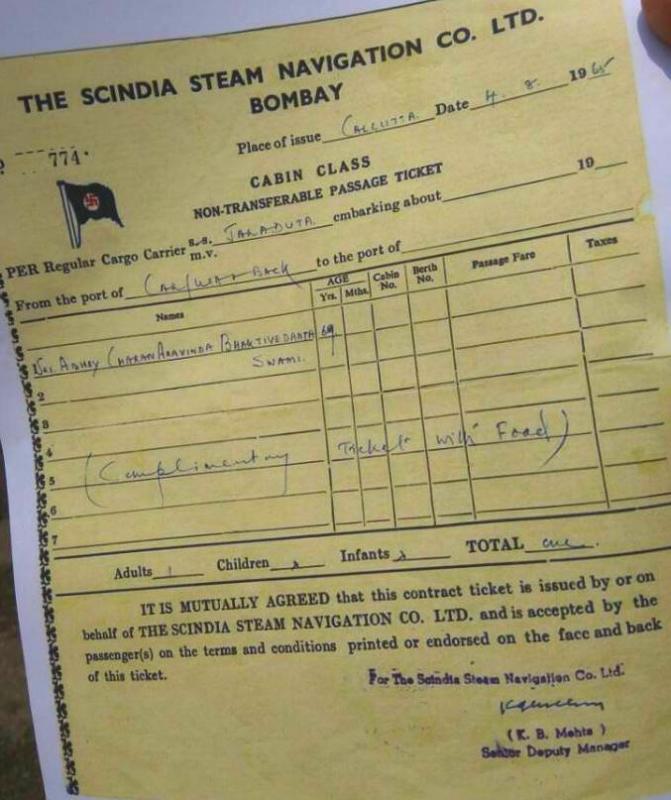 THE SCINDIA STEAM NAVIGATION CO. LTD.
BOMBAY
774.
Place of issue CALCUTTA. Date 4. 8. 1965
CABIN CLASS
NON-TRANSFERABLE PASSAGE TICKET
PER Regular Cargo Carrier s.s. m.v. JALADUTA embarking about 19
From the port of Cal/ Back to the port of
Names AGE Yrs. Mths. Cabin No. Berth No. Passage Fare Taxes
1 SRI ABHAY CHARANARAVINDA BHAKTIVEDANTA 69
SWAMI.
2
3
4
5 (Complimentary Ticket with Food)
6
7
Adults 1 Children Infants TOTAL one.
IT IS MUTUALLY AGREED that this contract ticket is issued by or on
behalf of THE SCINDIA STEAM NAVIGATION CO. LTD. and is accepted by the
passenger(s) on the terms and conditions printed or endorsed on the face and back
of this ticket.
For The Scindia Steam Navigation Co. Ltd.
(K. B. Mehta)
Senior Deputy Manager